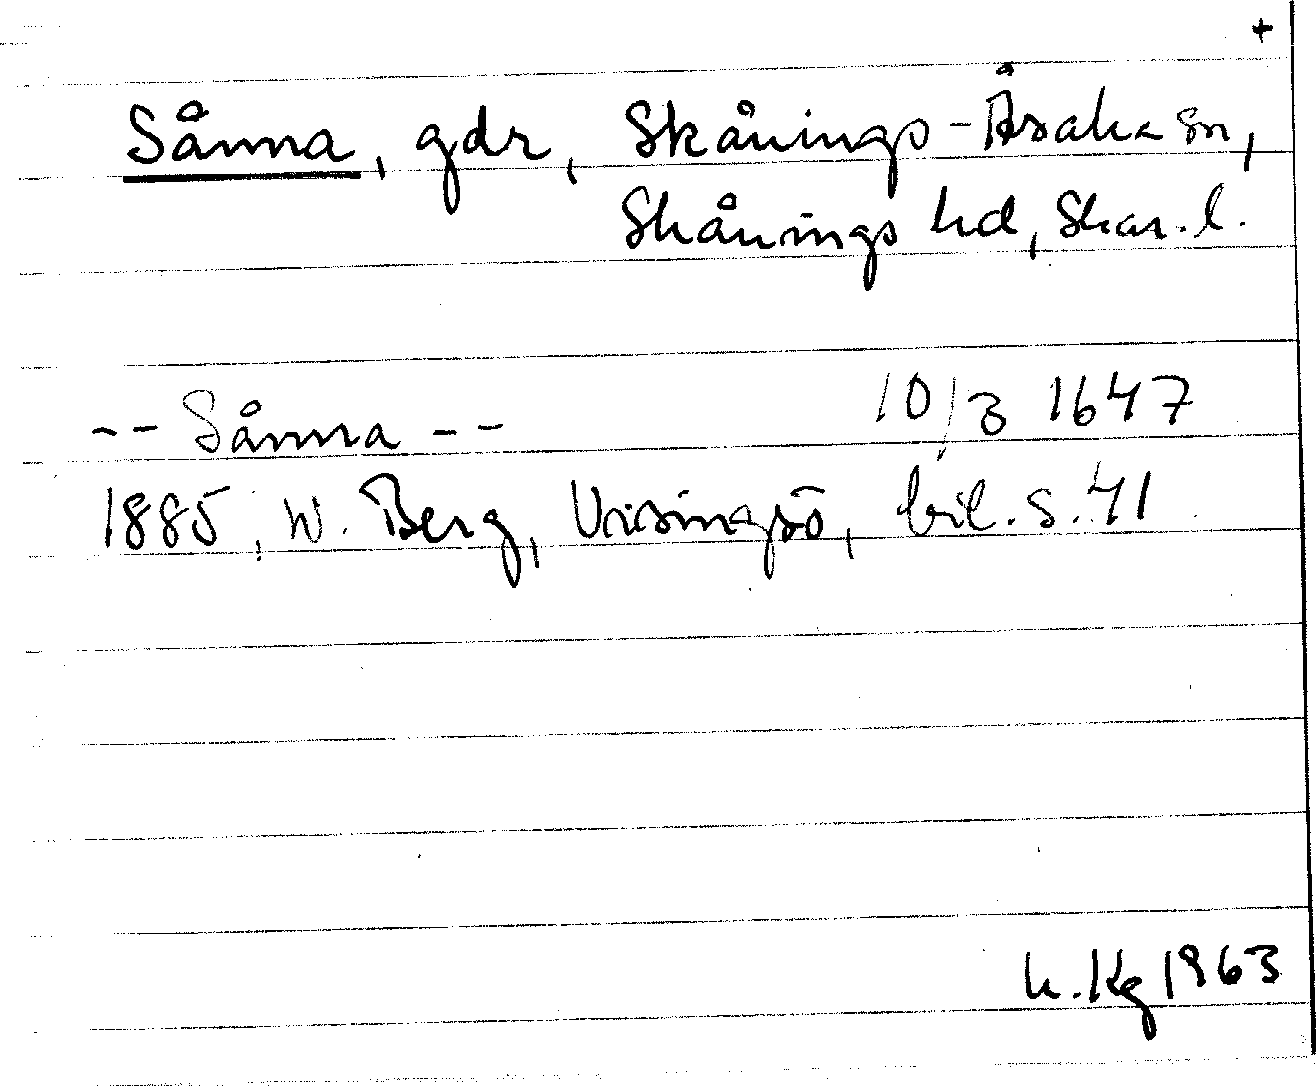 +
Sånna, gdr, Skånings-Åsaka sn,
Skånings hd, Skar. l.
-- Sånna -- 10/3 1647
1885, W. Berg, Visingsö, bil. s. 41
1963